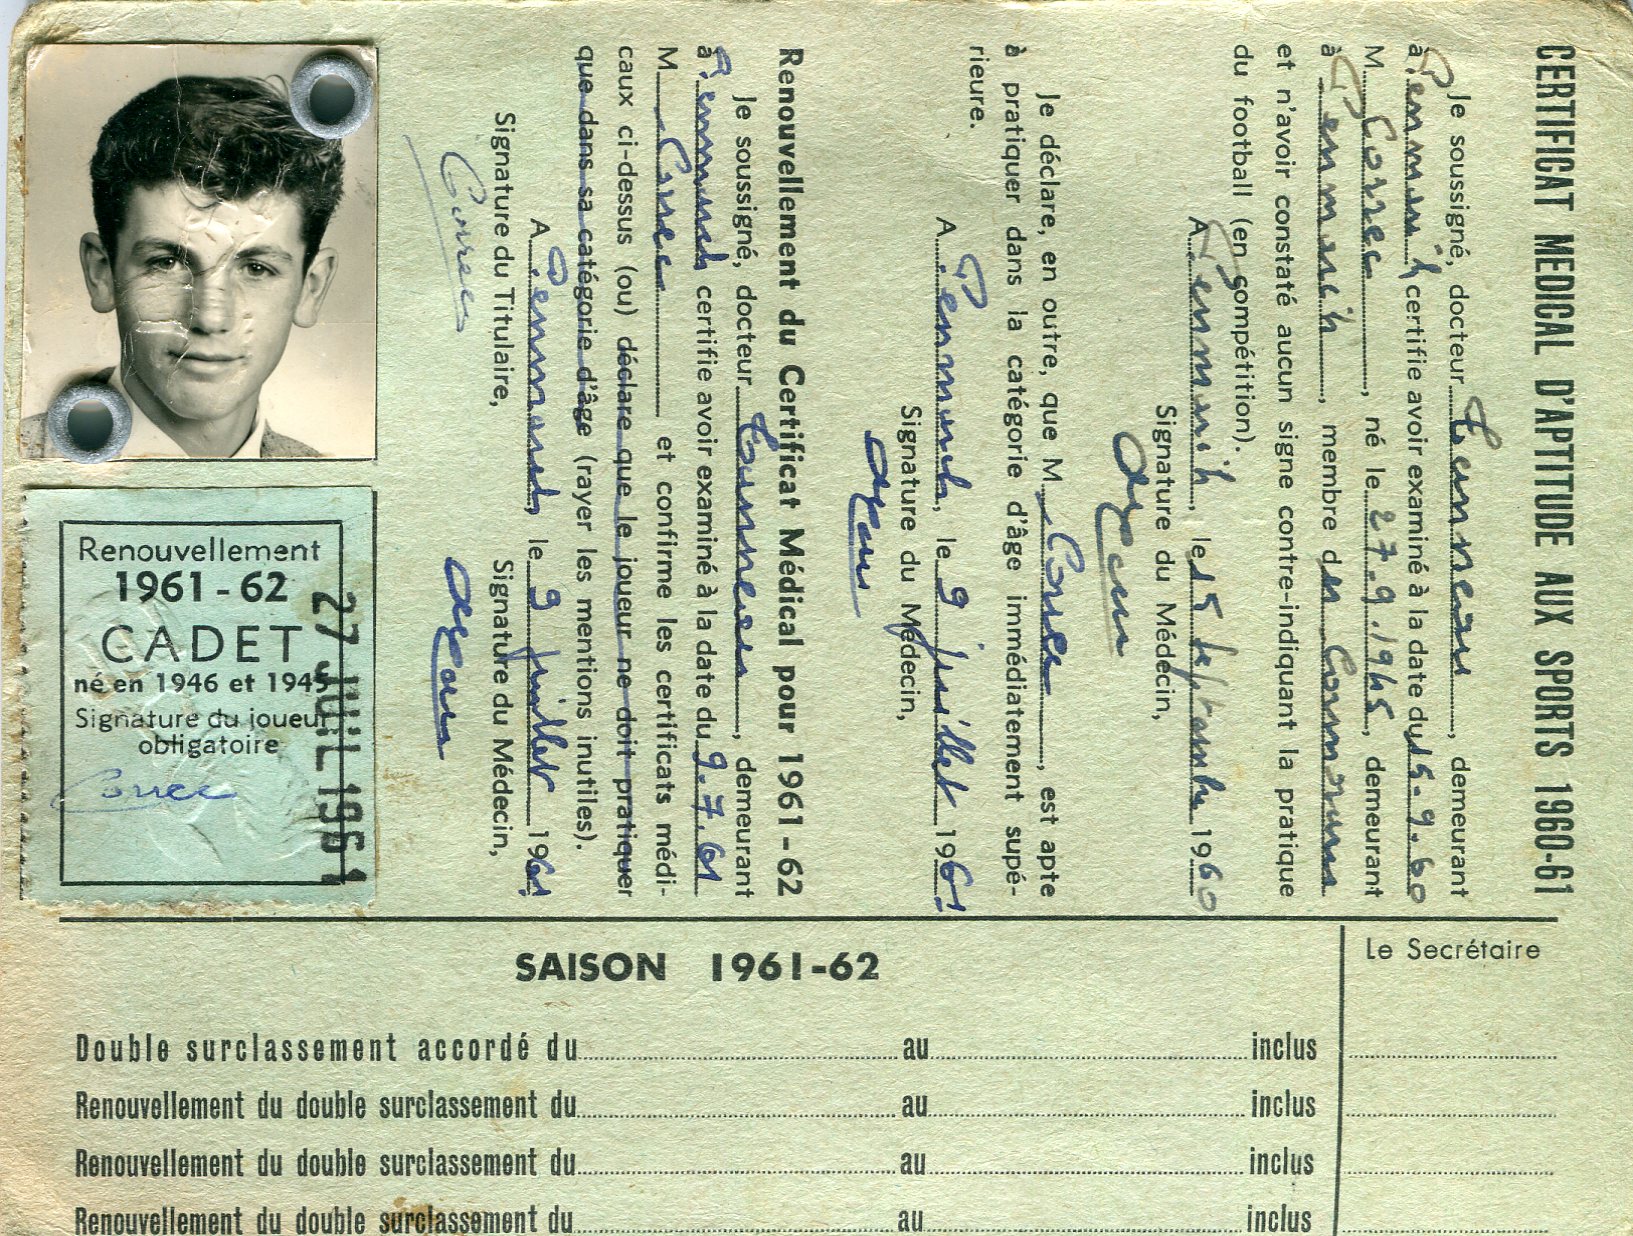 CERTIFICAT MEDICAL D'APTITUDE AUX SPORTS 1960-61
Je soussigné, docteur, demeurant
à certifie avoir examiné à la date du 15-9.60
M. Correc, né le 27.9.1945, demeurant
à, membre d
et n'avoir constaté aucun signe contre-indiquant la pratique
du football (en compétition).
A, le 15 septembre 1960
Signature du Médecin,
Je déclare, en outre, que M. Correc, est apte
à pratiquer dans la catégorie d'âge immédiatement supé-
rieure.
A, le 9 juillet 1961
Signature du Médecin,
Renouvellement du Certificat Médical pour 1961-62
Je soussigné, docteur, demeurant
à certifie avoir examiné à la date du 9.7.61
M. Correc et confirme les certificats médi-
caux ci-dessus (ou) déclare que le joueur ne doit pratiquer
que dans sa catégorie d'âge (rayer les mentions inutiles).
A, le 9 juillet 1961
Signature du Titulaire, Signature du Médecin,
Correc
Renouvellement
1961-62
CADET
né en 1946 et 1945
Signature du joueur
obligatoire
Correc
27 JUIL 1961
SAISON 1961-62
Le Secrétaire
Double surclassement accordé du au inclus
Renouvellement du double surclassement du au inclus
Renouvellement du double surclassement du au inclus
Renouvellement du double surclassement du au inclus